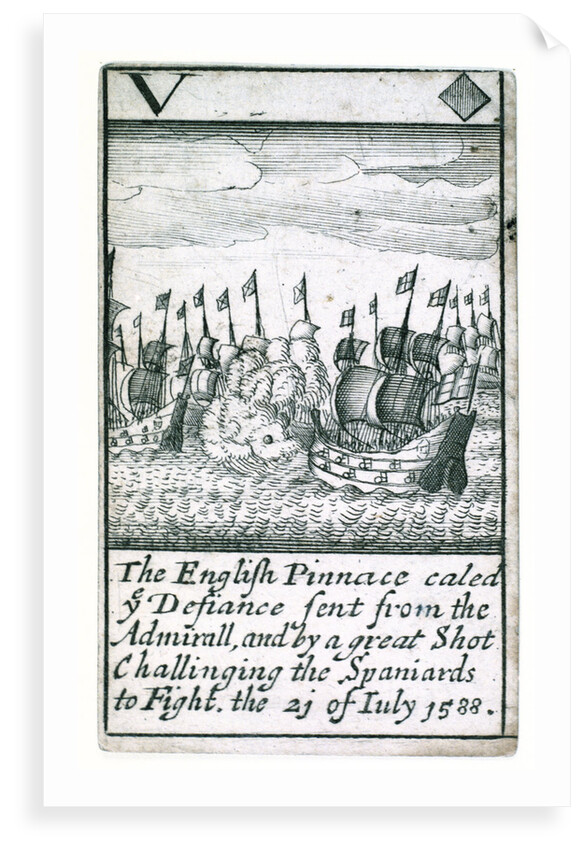 V
The Engliſh Pinnace caled
yͤ Defiance ſent from the
Admirall, and by a great Shot
Challinging the Spaniards
to Fight. the 21 of Iuly 1588.